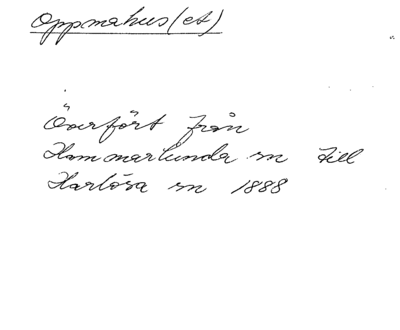 Oppmahus (et)
Överfört från
Hammarlunda sn till
Harlösa sn 1888